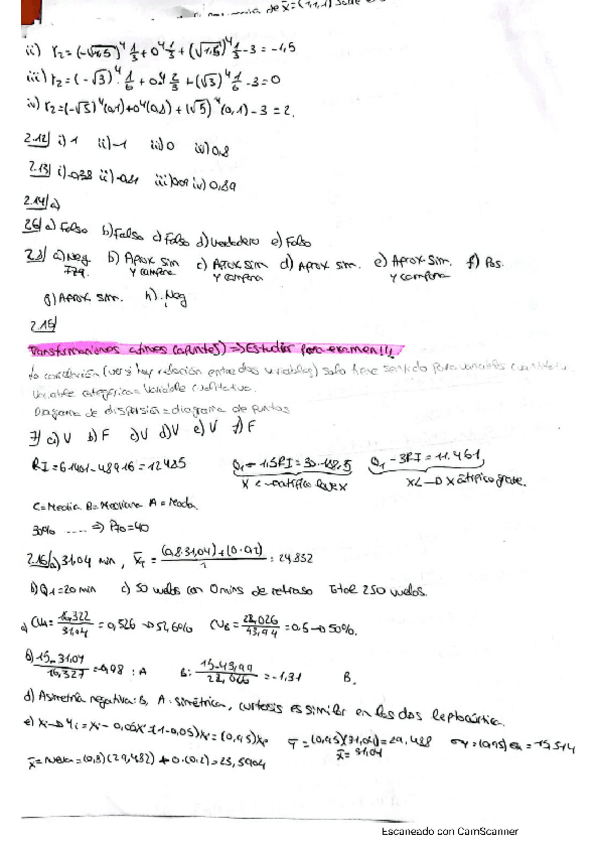 de x̄=(1,1,1)
ii) r₂=(-√1,5)⁴ 1/3 + 0⁴ 1/3 + (√1,5)⁴ 1/3 - 3 = -1,5
iii) r₂=(-√3)⁴ 1/6 + 0⁴ 2/3 + (√3)⁴ 1/6 - 3 = 0
iv) r₂=(-√5)⁴(0,1)+0⁴(0,8)+(√5)⁴(0,1)-3=2.
2.12/ i) 1 ii) -1 iii) 0 iv) 0,8
2.13/ i) -0,38 ii) -0,81 iii) 0,09 iv) 0,89
2.14/ a)
2.6/ a) Falso b) Falso c) Falso d) Verdadero e) Falso
2.8/ a) Neg b) Aprox sim c) Aprox sim d) Aprox sim. e) Aprox sim. f) Pos.
Izq. y campana y campana y campana
g) Aprox sim. h) Neg
2.15/
Transformaciones afines (apuntes) => Estudiar para examen!!!
La correlación (ver si hay relación entre dos variables) solo tiene sentido para variables
Variable categórica = Variable cualitativa.
Diagrama de dispersión = diagrama de puntos
7/ a) V b) F c) V d) V e) V f) F
RI = 61401 - 48916 = 12485 Q₁ - 1,5RI = 30.188,5 Q₁ - 3RI = 11.461
x < -> atípico leve x x < -> x atípico grave.
C = Media B = Mediana A = Moda
30% ..... => P₇₀ = 40
2.16/ a) 31,04 min, x̄ = (0,8·31,04)+(0·0,2) = 24,832
b) Q₁ = 20 min c) 50 vuelos con 0 mins de retraso Total 250 vuelos.
= 0,526 -> 52,6% CVB = 22,026/43,94 = 0,5 -> 50%.
b) 15-31,04/16,327 = -0,98 : A B: = -1,31 B.
d) Asimetría negativa: B, A: simétrica, curtosis es similar en las dos leptocúrtica.
e) xᵢ -> yᵢ = xᵢ - 0,05xᵢ = (1-0,05)xᵢ = (0,95)xᵢ ȳ = (0,95)(31,04) = 29,488
x̄ = 31,04
= (0,8)(29,482) + 0·(0,2) = 23,5904
Escaneado con CamScanner